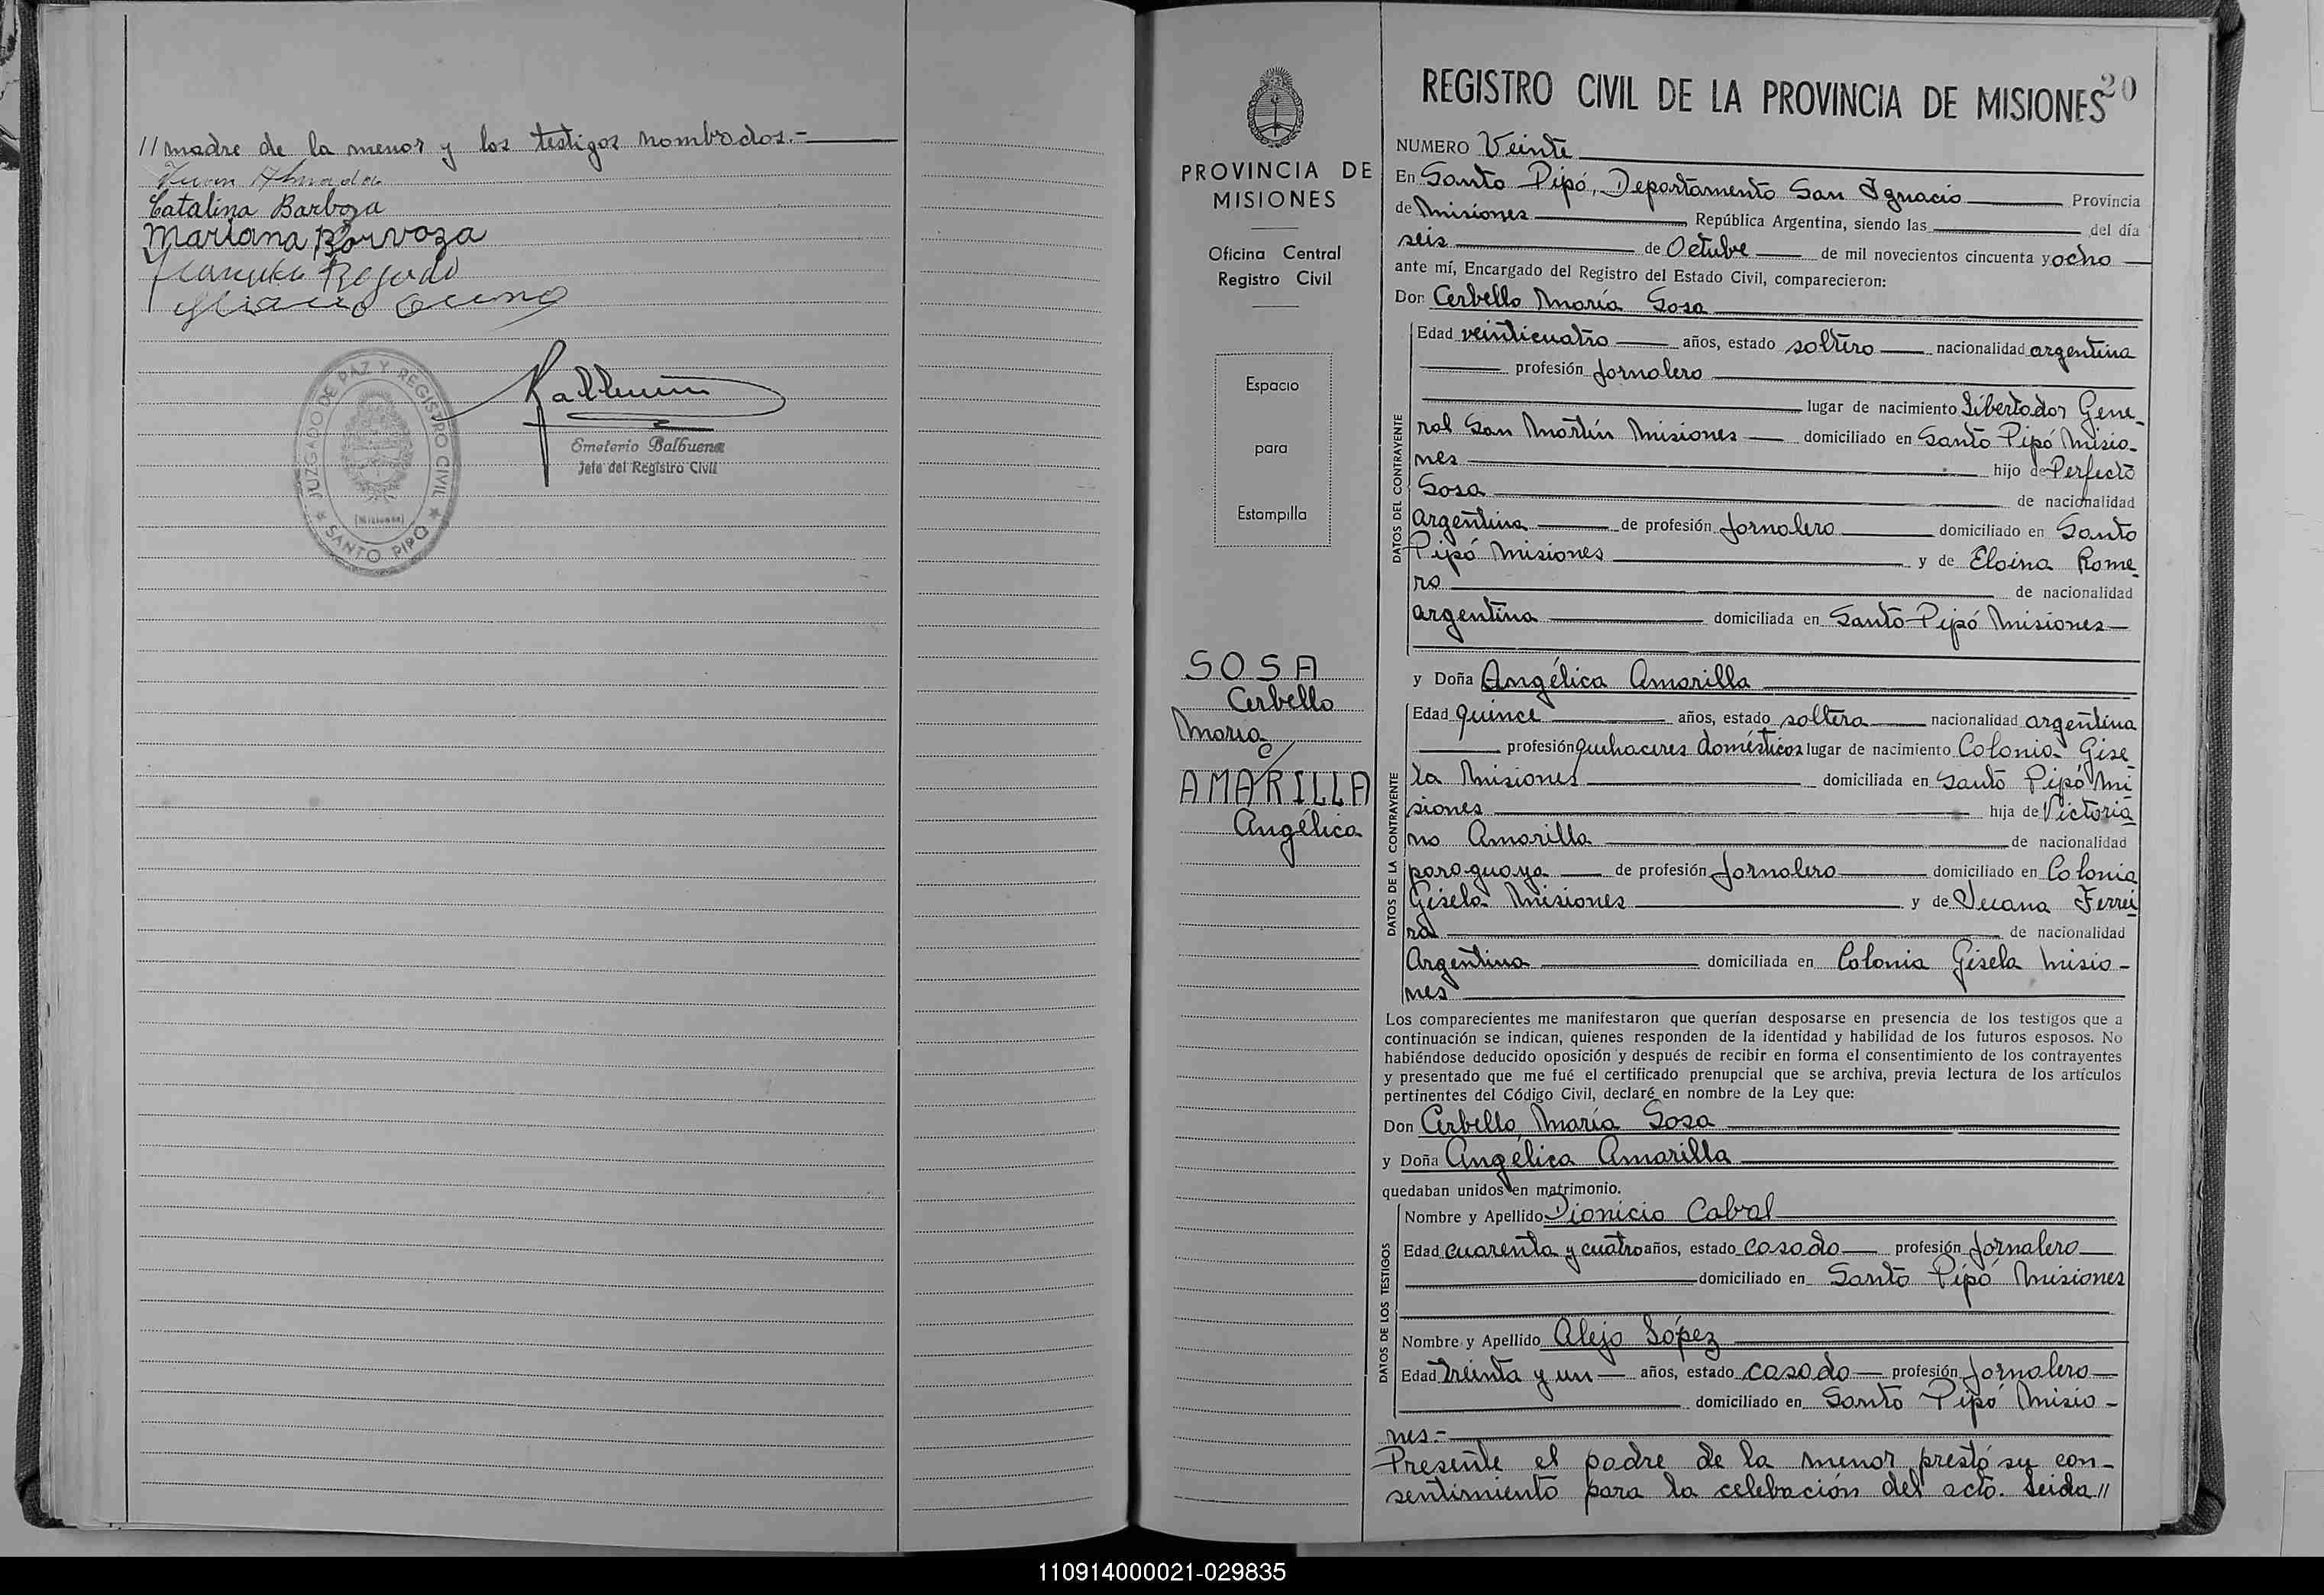 // madre de la menor y los testigos nombrados.-
Juan Almada
Catalina Barboza
Mariana Barvoza
JUZGADO DE PAZ Y REGISTRO CIVIL
(Misiones)
SANTO PIPO
Emeterio Balbuena
Jefe del Registro Civil
PROVINCIA DE
MISIONES
Oficina Central
Registro Civil
Espacio
para
Estampilla
SOSA
Cerbello
María
c/
AMARILLA
Angélica
REGISTRO CIVIL DE LA PROVINCIA DE MISIONES
20
NUMERO Veinte
En Santo Pipó, Departamento San Ignacio Provincia
de Misiones República Argentina, siendo las del día
seis de Octubre de mil novecientos cincuenta y ocho
ante mí, Encargado del Registro del Estado Civil, comparecieron:
Don Cerbello María Sosa
DATOS DEL CONTRAYENTE
Edad veinticuatro años, estado soltero nacionalidad argentina
profesión Jornalero
lugar de nacimiento Libertador Gene-
ral San Martín Misiones domiciliado en Santo Pipó Misio-
nes hijo de Perfecto
Sosa de nacionalidad
argentina de profesión Jornalero domiciliado en Santo
Pipó Misiones y de Eloina Rome-
ro de nacionalidad
argentina domiciliada en Santo Pipó Misiones
y Doña Angélica Amarilla
DATOS DE LA CONTRAYENTE
Edad quince años, estado soltera nacionalidad argentina
profesión quehaceres domésticos lugar de nacimiento Colonia Gise-
la Misiones domiciliada en Santo Pipó Mi-
siones hija de Victoria-
no Amarilla de nacionalidad
paraguaya de profesión Jornalero domiciliado en Colonia
Gisela Misiones y de Ferrei-
ra de nacionalidad
Argentina domiciliada en Colonia Gisela Misio-
nes
Los comparecientes me manifestaron que querían desposarse en presencia de los testigos que a
continuación se indican, quienes responden de la identidad y habilidad de los futuros esposos. No
habiéndose deducido oposición y después de recibir en forma el consentimiento de los contrayentes
y presentado que me fué el certificado prenupcial que se archiva, previa lectura de los artículos
pertinentes del Código Civil, declaré en nombre de la Ley que:
Don Cerbello María Sosa
y Doña Angélica Amarilla
quedaban unidos en matrimonio.
DATOS DE LOS TESTIGOS
Nombre y Apellido Dionicio Cabral
Edad cuarenta y cuatro años, estado casado profesión Jornalero
domiciliado en Santo Pipó Misiones
Nombre y Apellido Alejo López
Edad treinta y un años, estado casado profesión Jornalero
domiciliado en Santo Pipó Misio-
nes.-
Presente el padre de la menor prestó su con-
sentimiento para la celebración del acto. Leida //
110914000021-029835